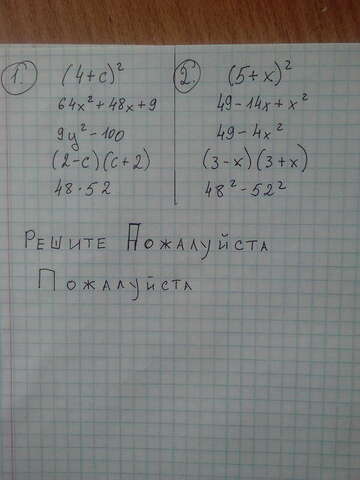 1. (4+c)²
64x²+48x+9
9y²-100
(2-c)(c+2)
48·52
2. (5+x)²
49-14x+x²
49-4x²
(3-x)(3+x)
48²-52²
РЕШИТЕ ПОЖАЛУЙСТА
ПОЖАЛУЙСТА